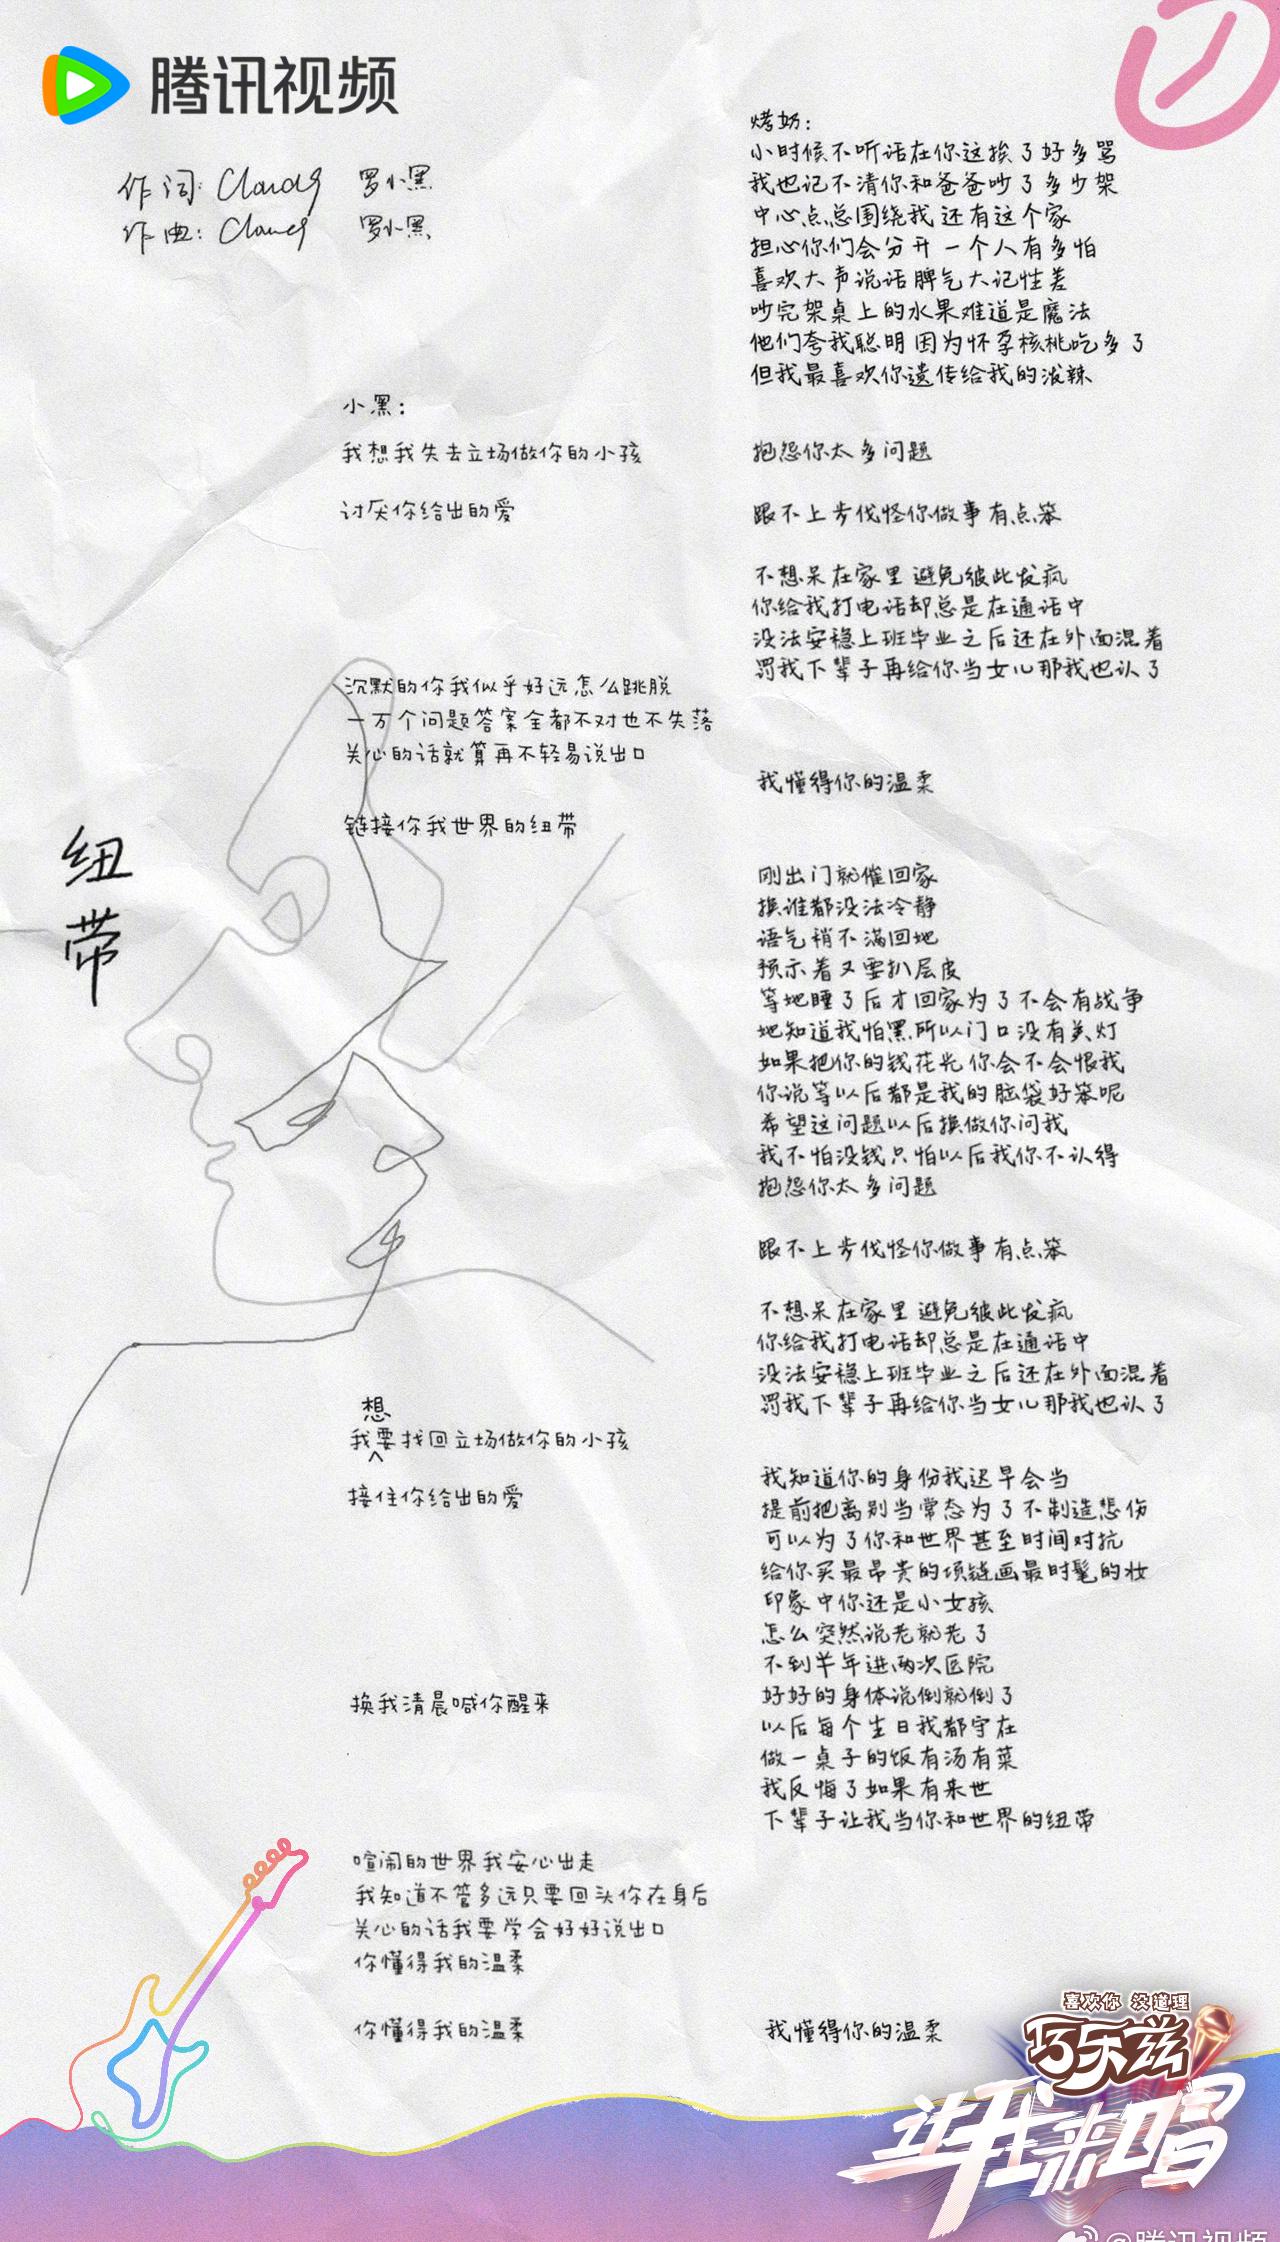 腾讯视频
作词: Cloud9 罗小黑
作曲: Cloud9 罗小黑
纽带
小黑：
我想我失去立场做你的小孩
讨厌你给出的爱
沉默的你我似乎好远怎么跳脱
一万个问题答案全都不对也不失落
关心的话就算再不轻易说出口
链接你我世界的纽带
想
我要找回立场做你的小孩
接住你给出的爱
换我清晨喊你醒来
喧闹的世界我安心出走
我知道不管多远只要回头你在身后
关心的话我要学会好好说出口
你懂得我的温柔
你懂得我的温柔
烤奶：
小时候不听话在你这挨了好多骂
我也记不清你和爸爸吵了多少架
中心点总围绕我还有这个家
担心你们会分开一个人有多怕
喜欢大声说话脾气大记性差
吵完架桌上的水果难道是魔法
他们夸我聪明因为怀孕核桃吃多了
但我最喜欢你遗传给我的泼辣
抱怨你太多问题
跟不上步伐怪你做事有点笨
不想呆在家里避免彼此发疯
你给我打电话却总是在通话中
没法安稳上班毕业之后还在外面混着
罚我下辈子再给你当女儿那我也认了
我懂得你的温柔
刚出门就催回家
换谁都没法冷静
语气稍不满回她
预示着又要扒层皮
等她睡了后才回家为了不会有战争
她知道我怕黑所以门口没有关灯
如果把你的钱花光你会不会恨我
你说等以后都是我的脑袋好笨呢
希望这问题以后换做你问我
我不怕没钱只怕以后我你不认得
抱怨你太多问题
跟不上步伐怪你做事有点笨
不想呆在家里避免彼此发疯
你给我打电话却总是在通话中
没法安稳上班毕业之后还在外面混着
罚我下辈子再给你当女儿那我也认了
我知道你的身份我迟早会当
提前把离别当常态为了不制造悲伤
可以为了你和世界甚至时间对抗
给你买最昂贵的项链画最时髦的妆
印象中你还是小女孩
怎么突然说老就老了
不到半年进两次医院
好好的身体说倒就倒了
以后每个生日我都守在
做一桌子的饭有汤有菜
我反悔了如果有来世
下辈子让我当你和世界的纽带
我懂得你的温柔
喜欢你 没道理
巧乐兹
斗我来唱
@腾讯视频